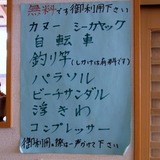 無料です御利用下さい
カヌー シーカヤック
自転車
釣り竿(しかけは有料です)
パラソル
ビーチサンダル
浮きわ
コンプレッサー
御利用の際は一声かけて下さい